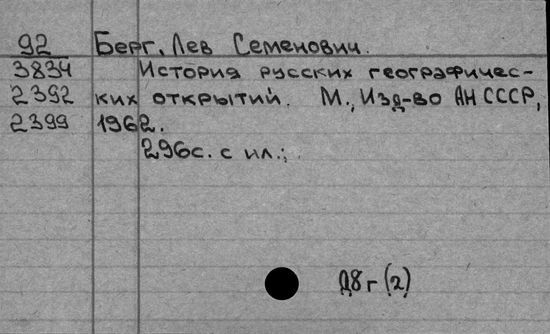 92 Берг, Лев Семенович.
3834 История русских географичес-
2392 ких открытий. М., Изд-во АН СССР,
2399 1962.
296с. с ил.;
Д8г(2)